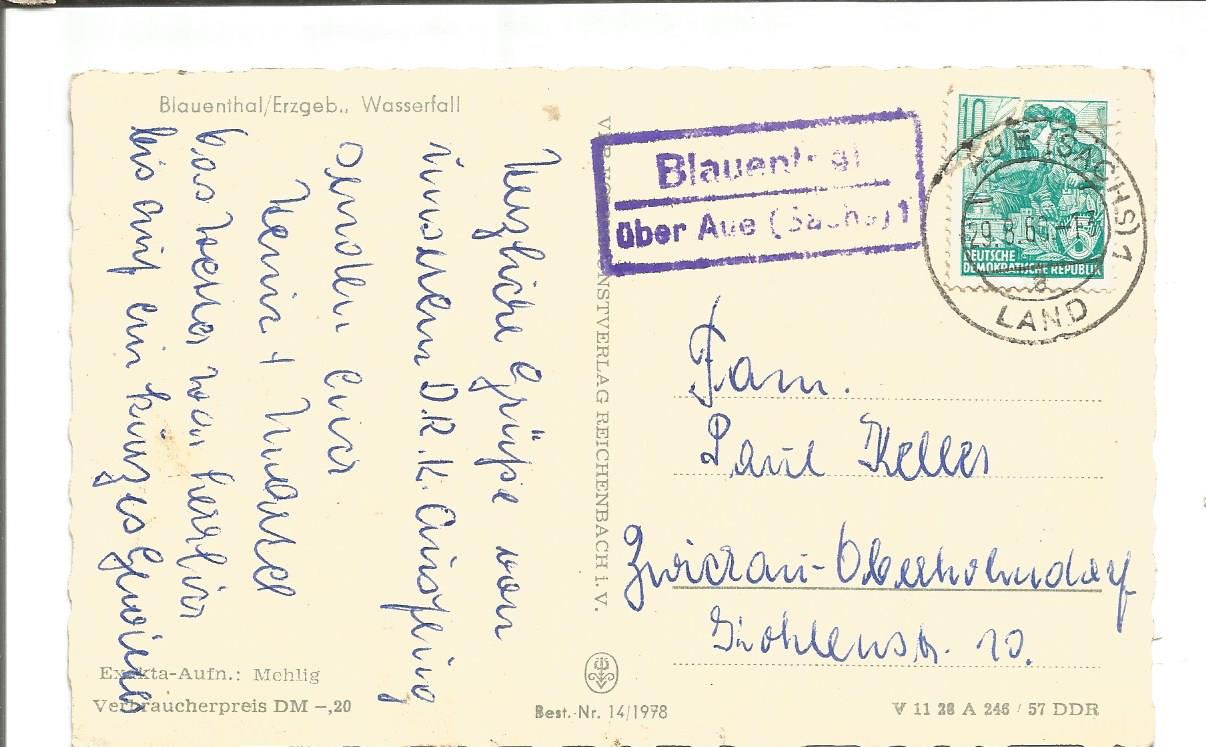 Blauenthal/Erzgeb., Wasserfall
Herzliche Grüße von
unserem D.R.K. Ausflug
senden Euch
Heinz +
das Wetter war herrlich
bis auf ein kurzes Gewitter
Exakta-Aufn.: Mehlig
Verbraucherpreis DM –,20
Best.-Nr. 14/1978
V 11 28 A 246 / 57 DDR
KUNSTVERLAG REICHENBACH i. V.
Blauenthal
über Aue (Sachs) 1
10
DEUTSCHE
DEMOKRATISCHE REPUBLIK
AUE (SACHS) 1
29.8.
LAND
Fam.
Paul Keller
Zwickau-Oberhohndorf
10.